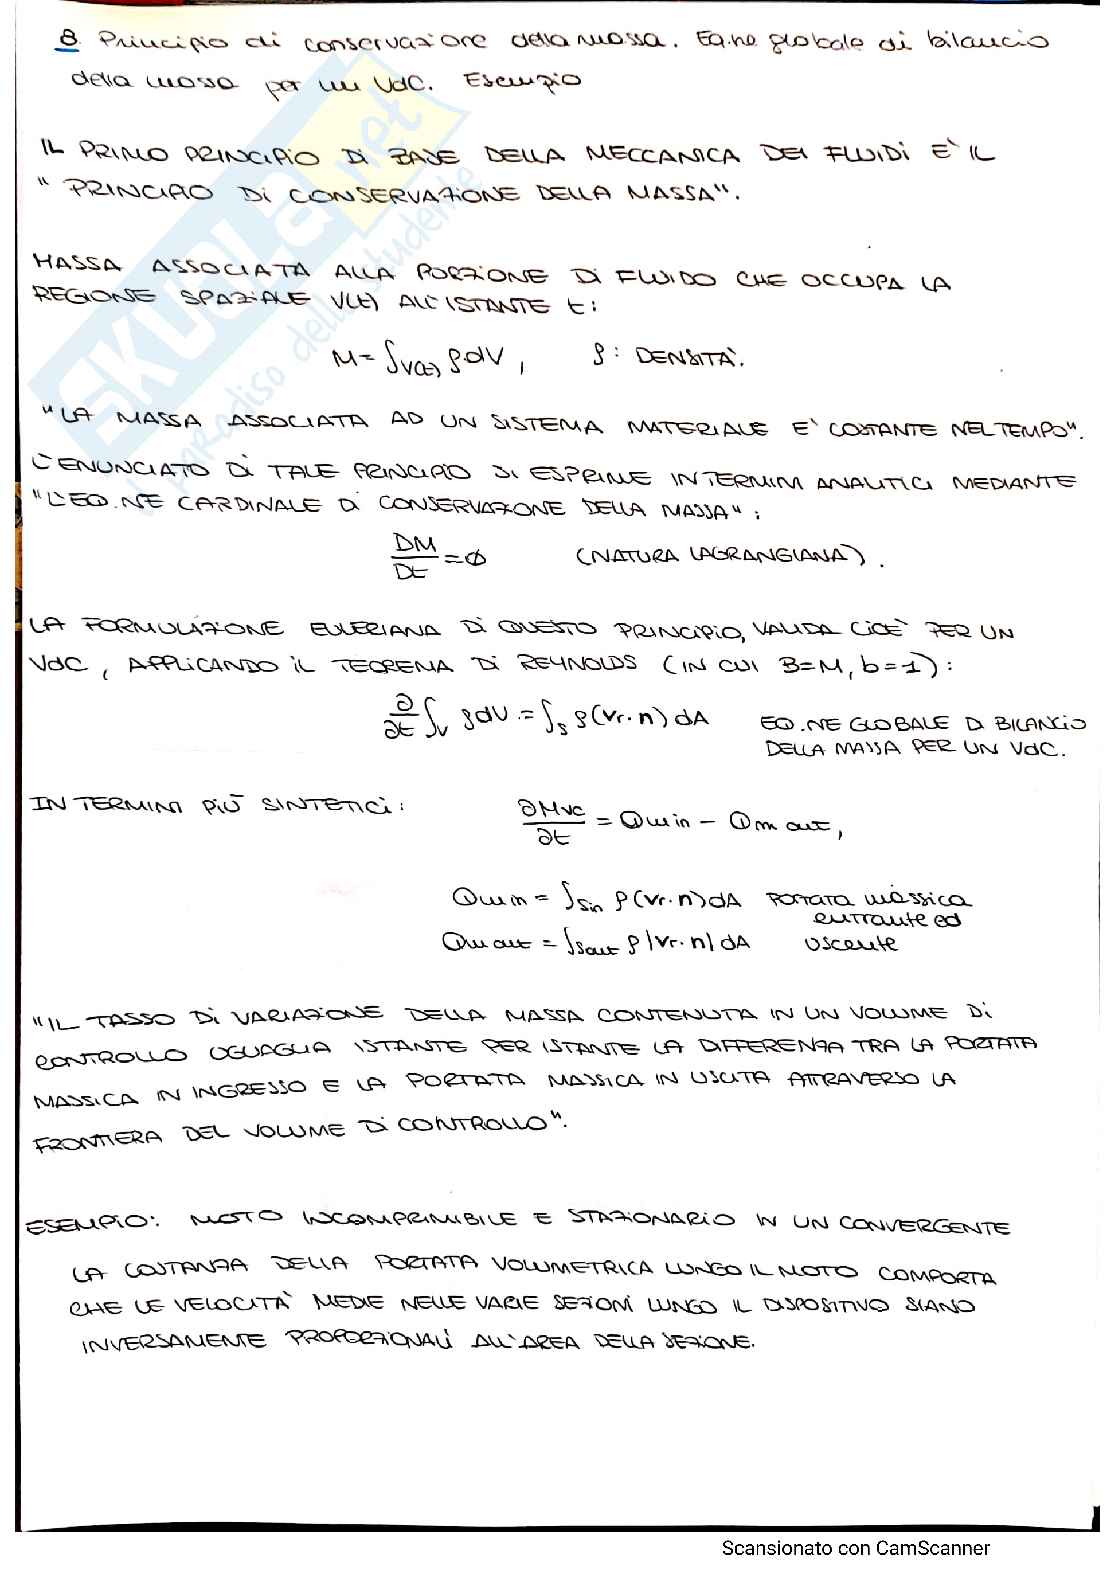 8. Principio di conservazione della massa. Eq.ne globale di bilancio
della massa per un VdC. Esempio
IL PRIMO PRINCIPIO DI BASE DELLA MECCANICA DEI FLUIDI E' IL
"PRINCIPIO DI CONSERVAZIONE DELLA MASSA".
MASSA ASSOCIATA ALLA PORZIONE DI FLUIDO CHE OCCUPA LA
REGIONE SPAZIALE V(t) ALL'ISTANTE t:
M = ∫V(t) ρ dV, ρ: DENSITÀ.
"LA MASSA ASSOCIATA AD UN SISTEMA MATERIALE E' COSTANTE NEL TEMPO".
L'ENUNCIATO DI TALE PRINCIPIO SI ESPRIME IN TERMINI ANALITICI MEDIANTE
"L'EQ.NE CARDINALE DI CONSERVAZIONE DELLA MASSA":
DM/Dt = 0 (NATURA LAGRANGIANA).
LA FORMULAZIONE EULERIANA DI QUESTO PRINCIPIO, VALIDA CIOE' PER UN
VdC, APPLICANDO IL TEOREMA DI REYNOLDS (IN CUI B=M, b=1):
∂/∂t ∫V ρ dV = ∫S ρ(Vr·n) dA EQ.NE GLOBALE DI BILANCIO
DELLA MASSA PER UN VdC.
IN TERMINI PIÙ SINTETICI:
∂Mvc/∂t = Qm in - Qm out,
Qm in = ∫Sin ρ(Vr·n) dA PORTATA MASSICA
entrante ed
Qm out = ∫Sout ρ|Vr·n| dA uscente
"IL TASSO DI VARIAZIONE DELLA MASSA CONTENUTA IN UN VOLUME DI
CONTROLLO UGUAGLIA ISTANTE PER ISTANTE LA DIFFERENZA TRA LA PORTATA
MASSICA IN INGRESSO E LA PORTATA MASSICA IN USCITA ATTRAVERSO LA
FRONTIERA DEL VOLUME DI CONTROLLO".
ESEMPIO: MOTO INCOMPRIMIBILE E STAZIONARIO IN UN CONVERGENTE
LA COSTANZA DELLA PORTATA VOLUMETRICA LUNGO IL MOTO COMPORTA
CHE LE VELOCITÀ MEDIE NELLE VARIE SEZIONI LUNGO IL DISPOSITIVO SIANO
INVERSAMENTE PROPORZIONALI ALL'AREA DELLA SEZIONE.
SKUOLA.net
il paradiso dello studente
Scansionato con CamScanner